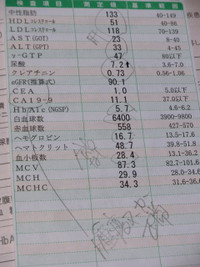 検査項目 測定値 基準範囲
中性脂肪 133 40-149
HDLコレステロール 51 40-86
LDLコレステロール 118 70-139
AST(GOT) 23 8-40
ALT(GPT) 33 4-45
γ-GTP 47 80以下
尿酸 7.2↑ 3.6-7.0
クレアチニン 0.73 0.56-1.06
eGFR(推算式) 90.1
CEA 1.0 5.0以下
CA19-9 11.1 37.0以下
HbA1c(NGSP) 5.7 4.6-6.2
白血球数 6400 3900-9800
赤血球数 558 427-570
ヘモグロビン 16.7 13.5-17.6
ヘマトクリット 48.7 39.8-51.8
血小板数 28.4 13.1-36.2
MCV 87.3
MCH 29.9 28.0-34.6
MCHC 34.3 31.6-36.